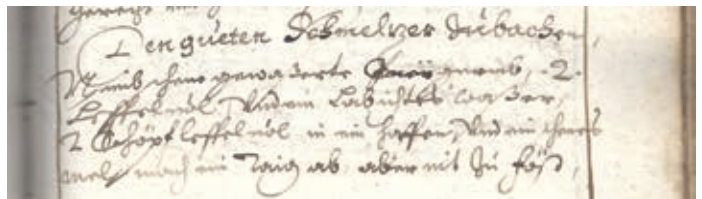 Den gueten Schmelzer Zubachen,
Nimb schene gewaßerte
Leffel vol, Vnd ein Labichtes waßer,
2 Schöpf leffel vol in ein haffen, Vnd ein schenes
mel, mach ein Taig ab, aber nit Zu föst,